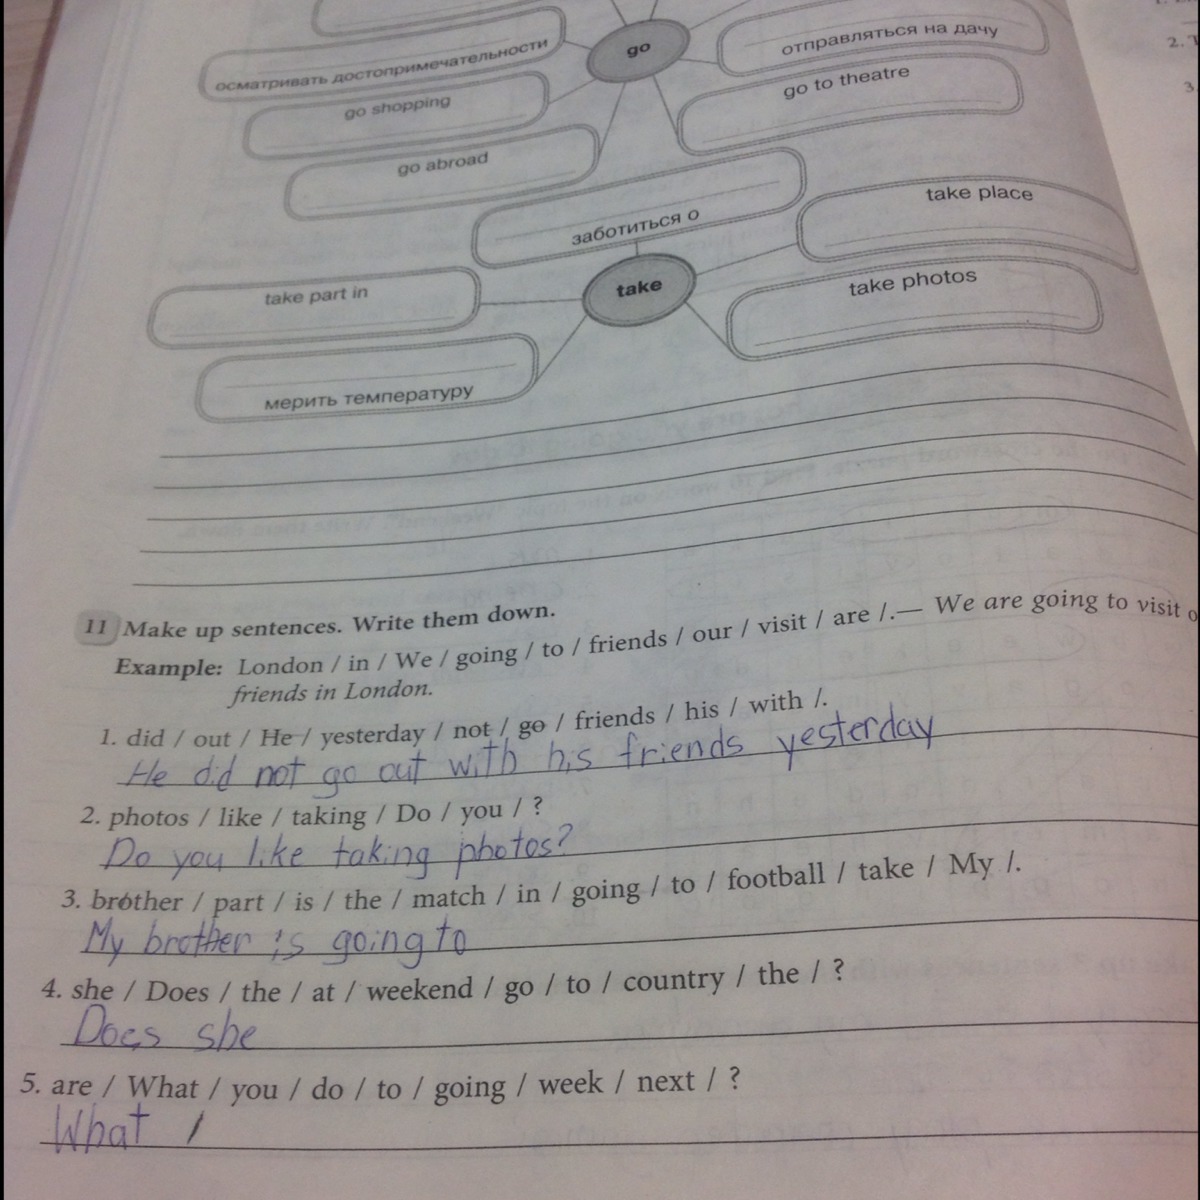 go
отправляться на дачу
осматривать достопримечательности
go to theatre
go shopping
go abroad
take place
заботиться о
take
take photos
take part in
мерить температуру
11 Make up sentences. Write them down.
Example: London / in / We / going / to / friends / our / visit / are /.— We are going to visit
friends in London.
1. did / out / He / yesterday / not / go / friends / his / with /.
He did not go out with his friends yesterday
2. photos / like / taking / Do / you / ?
Do you like taking photos?
3. brother / part / is / the / match / in / going / to / football / take / My /.
My brother is going to
4. she / Does / the / at / weekend / go / to / country / the / ?
Does she
5. are / What / you / do / to / going / week / next / ?
What
2.
3.